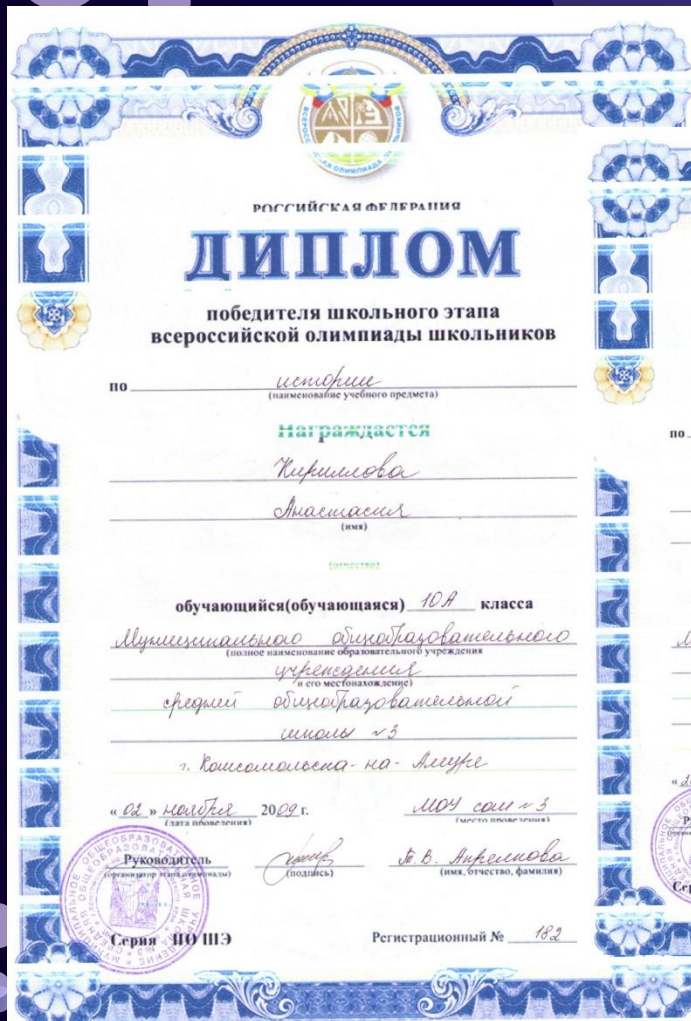 РОССИЙСКАЯ ФЕДЕРАЦИЯ
ДИПЛОМ
победителя школьного этапа
всероссийской олимпиады школьников
по истории
(наименование учебного предмета)
Награждается
Кириллова
Анастасия
(имя)
(отчество)
обучающийся(обучающаяся) 10А класса
Муниципального общеобразовательного
(полное наименование образовательного учреждения
учреждения
и его местонахождение)
средней общеобразовательной
школы №3
г. Комсомольска-на-Амуре
« 02 » ноября 2009 г. МОУ сош №3
(дата проведения) (место проведения)
Руководитель
(организатор этапа олимпиады) (подпись) (имя, отчество, фамилия)
Серия ПО ШЭ Регистрационный № 182
по